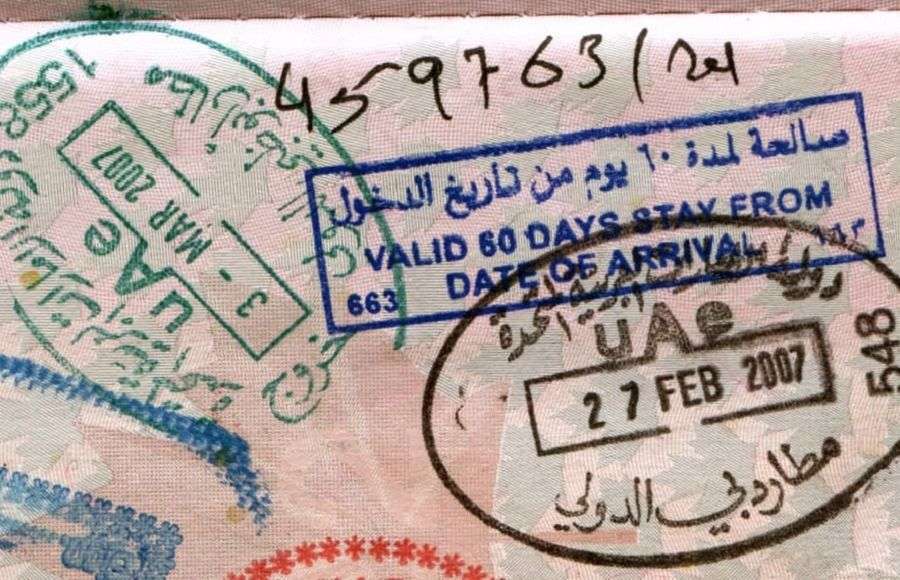 459763/
صالحة لمدة ٦٠ يوم من تاريخ الدخول
VALID 60 DAYS STAY FROM
DATE OF ARRIVAL
663 ٦٦٣
دولة الإمارات العربية المتحدة
UAe
27 FEB 2007
548
مطار دبي الدولي
1558
3 - MAR 2007
UAe
خروج